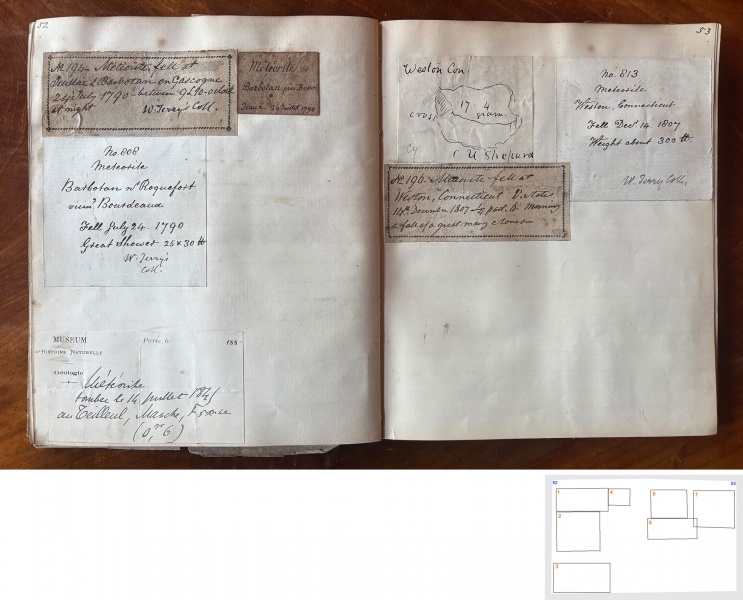 52
No 194 Meteorite fell at
Juillac & Barbotan en Gascogne
24th July 1790 between 9 & 10 o clock
at night W. Terry's Coll.
Météorite
Barbotan près Bor-
deaux 24 Juillet 1790
No. 808
Meteorite
Barbotan nr Roquefort
vicin? Bourdeaux
Fell July 24. 1790
Great Shower 25 & 30 lb
W. Terry's
Coll.
MUSEUM
D'HISTOIRE NATURELLE
Géologie
Paris, le 188
Météorite
tombée le 14 juillet 1845
au Teilleul, Manche, France
(0,gr 6)
53
Weston Con.
17 4
grains
crust
C U Shepard
No. 195 Meteorite fell at
Weston, Connecticut U. States
14th December 1807 ½ past 6 Morning
a fall of a great many stones
No. 813
Meteorite
Weston, Connecticut
Fell Decr. 14. 1807
Weight about 300 lb.
W. Terry Coll.
52
53
1
4
2
3
5
6
7